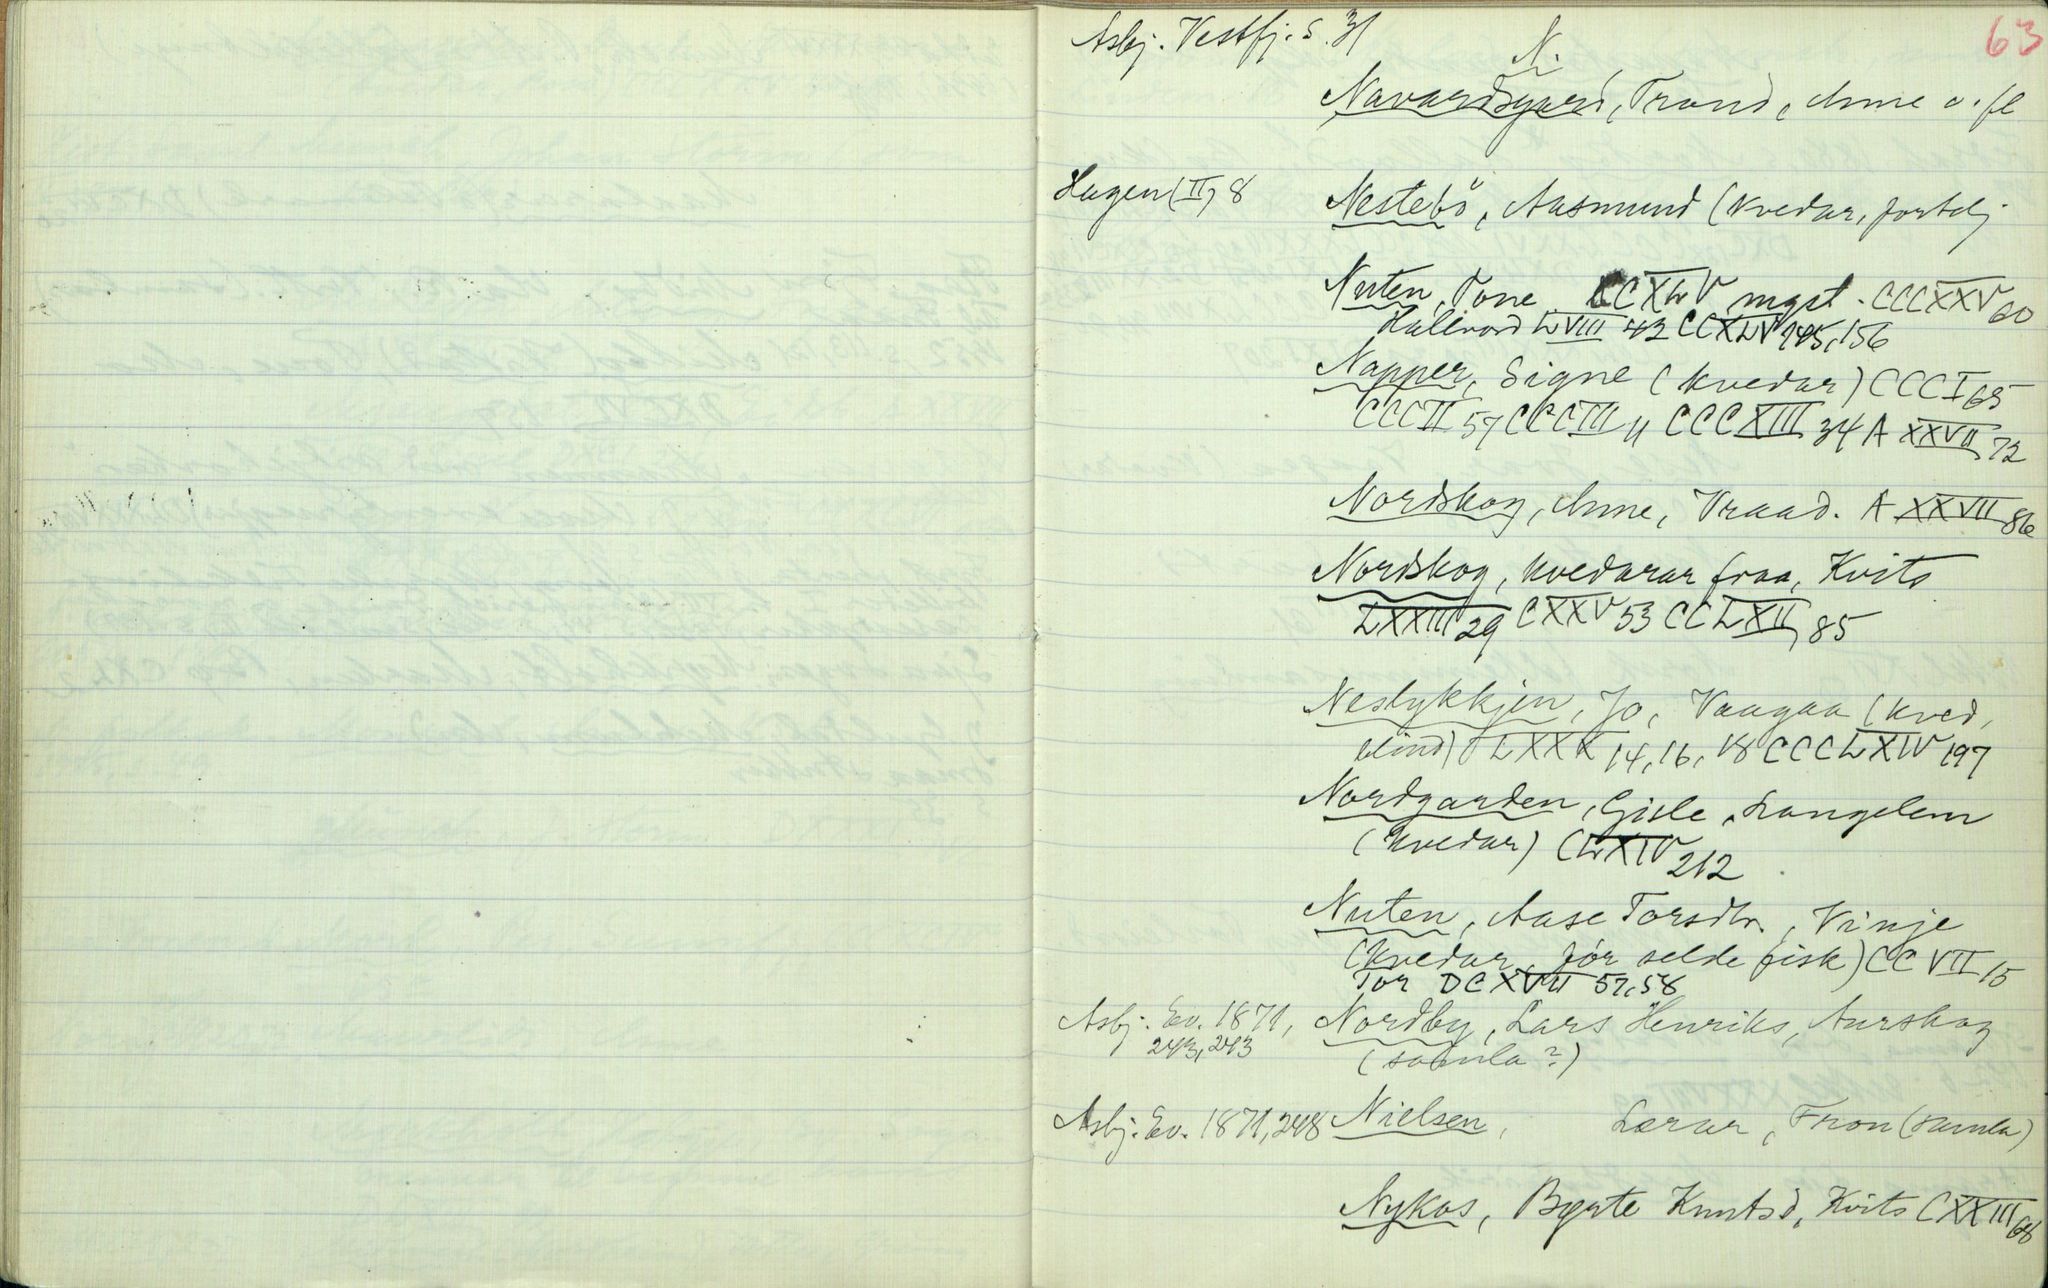 Asbj. Vestfj. s. 31
N.
63
Navardsgard, Trond, Anne o. fl
Hagen (II) 8 Nestebö, Aasmund (kvedar, fortelj
Nuten, Tone CCXLV mgst. CCCXXV 60
Hallvord LVIII 42 CCXLV 145, 156
Napper, Signe (kvedar) CCCI 65
CCCII 57 CCCIII 11 CCCXIII 34 A XXVII 72
Nordskog, Anne, Vraad. A XXVII 86
Nordskog, kvedarar fraa, Kvits
LXXIII 29 CXXV 53 CCLXII, 85
Neslykkjen, Jo, Vaagaa (kved,
blind) LXXX 14, 16, 18 CCCLXIV 197
Nordgarden, Gisle, Langelem
(kvedar) CLXIV 212
Nuten, Aase Torsdtr., Vinje
(kvedar, för selde fisk) CCVII 15
Tor DCXVII 57, 58
Asbj. Ev. 1871, Nordby, Lars Henriks, Aurskog
243, 243 (samla?)
Asbj. Ev. 1871, 248 Nielsen, Lærar, Fron (samla)
Nykos, Bgrte Knutsd, Kvits CXXIII 68